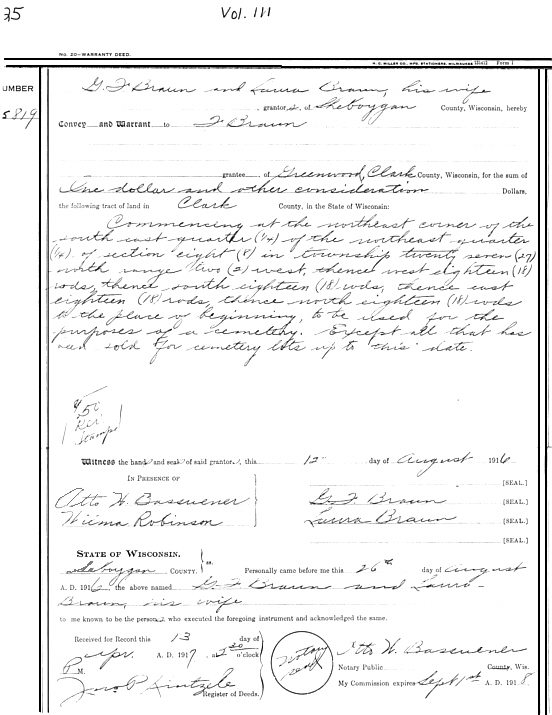 35 Vol. 111
No. 20—WARRANTY DEED.
H. C. MILLER CO., MFG. STATIONERS, MILWAUKEE Form 1
UMBER
5819
G. F Braun and Laura Braun, his wife
grantors, of Sheboygan County, Wisconsin, hereby
Convey and Warrant to F Braun
grantee of Greenwood, Clark County, Wisconsin, for the sum of
One dollar and other consideration Dollars,
the following tract of land in Clark County, in the State of Wisconsin:
Commencing at the northeast corner of the
south east quarter (1/4) of the northeast quarter
(1/4) of section eight (8) in township twenty seven (27)
north range two (2) west, thence west eighteen (18)
rods, thence south eighteen (18) rods, thence east
eighteen (18) rods, thence north eighteen (18) rods
to the place of beginning, to be used for the
purposes of a cemetery. Except all that has
sold for cemetery lots up to this date.
$ .50
Rev
Stamps
Witness the hands and seals of said grantors, this 12 day of August 1916
IN PRESENCE OF [SEAL.]
Atto W. Bassuener G. F. Braun [SEAL.]
Wilma Robinson Laura Braun [SEAL.]
[SEAL.]
STATE OF WISCONSIN.
Sheboygan COUNTY. ss. Personally came before me this 26th day of August
A. D. 1916, the above named G. F Braun and Laura
Braun, his wife
to me known to be the persons who executed the foregoing instrument and acknowledged the same.
Received for Record this 13 day of
Apr. A. D. 1917, at 2:30 o'clock
P M.
Register of Deeds.
Notary
seal
Atto W. Bassuener
Notary Public County, Wis.
My Commission expires Sept 1st A. D. 1918.